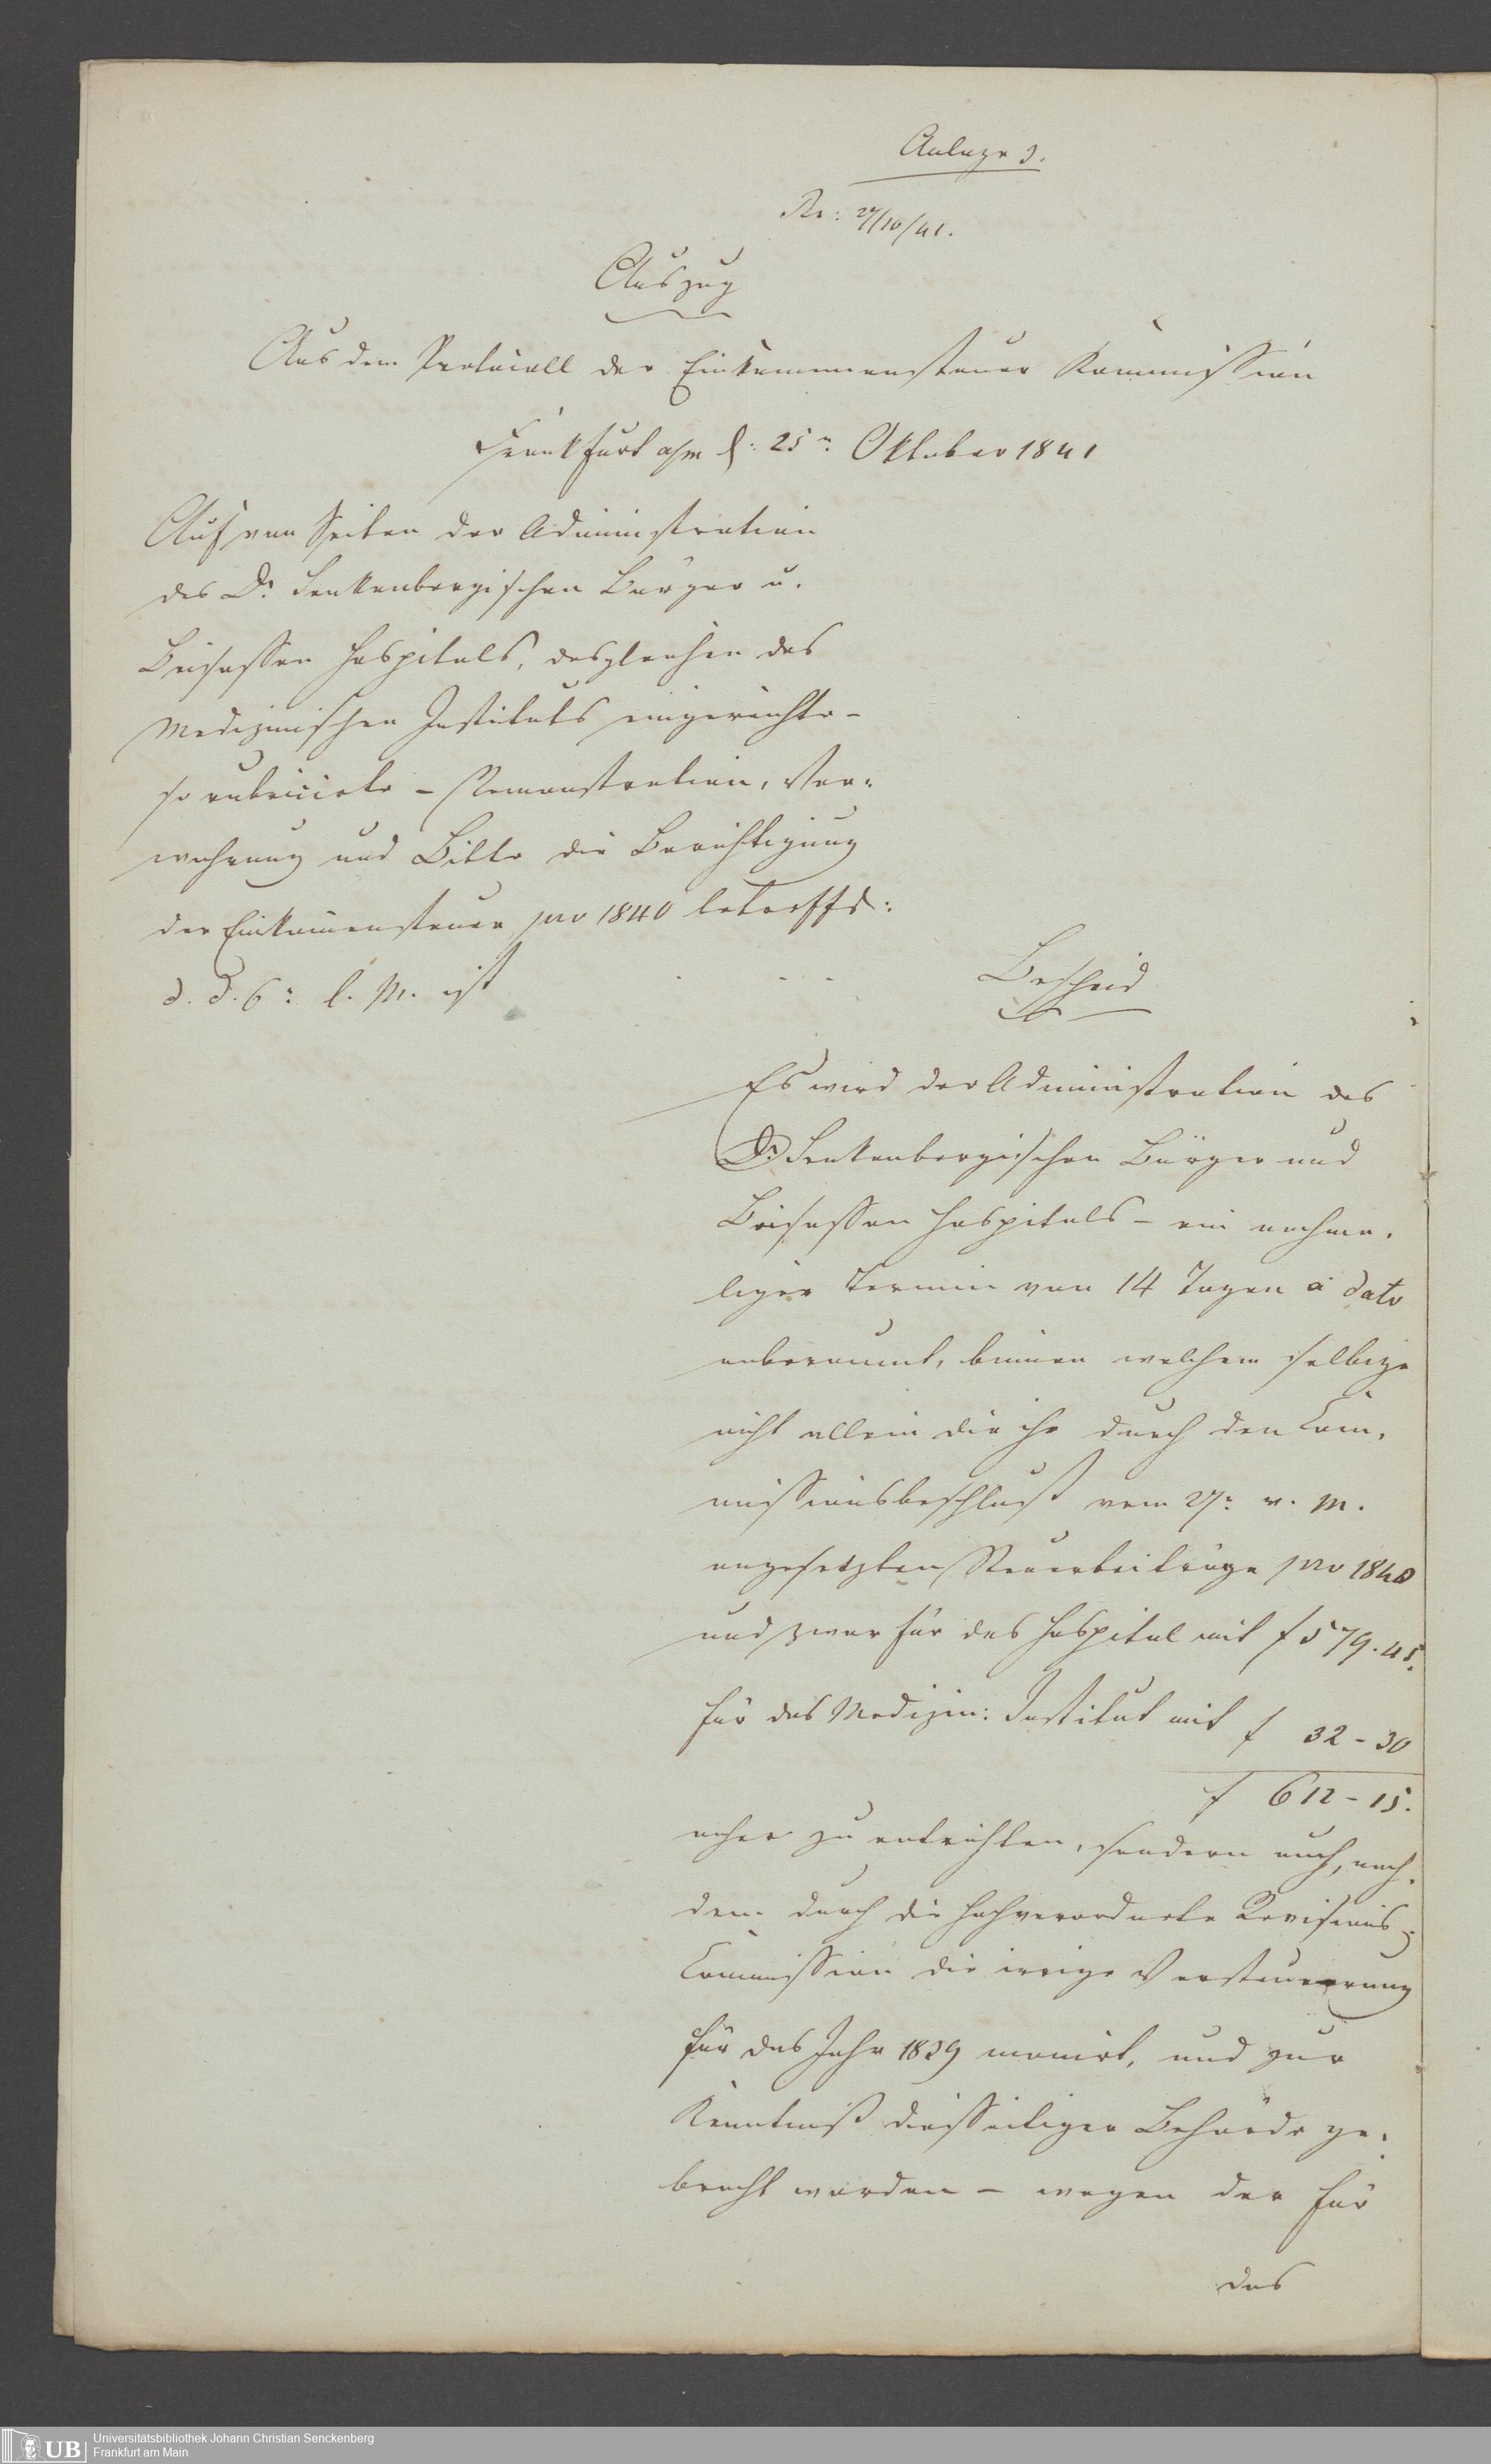 Anlage 3.
Pr: 27/10/41.
Auszug
Aus dem Protocoll der Einkommensteuer Kommission
Frankfurt a/m d: 25n. Oktober 1841
Auf von Seiten der Administration
des Dr. Senkenbergischen Bürger u.
Beisassen Hospitals, desgleichen des
Medizinischen Instituts eingereichte -
so rubricirte - Remonstration, Ver-
wahrung und Bitte die Berichtigung
der Einkommensteuer pro 1840 betreffd:
d. d. 6n. l. M. ist
Bescheid
Es wird der Administration des
Dr. Senkenbergischen Bürger und
Beisassen Hospitals - ein nochma-
liger Termin von 14 Tagen à dato
anberaumt, binnen welchem selbige
nicht allein die ihr durch den Com-
missionsbeschluß vom 27n. v. M.
angesetzten Steuerbeiträge pro 1840
und zwar für das Hospital mit f 579. 45.
für das Medizin: Institut mit f 32 - 30
f 612 - 15.
anher zu entrichten, sondern auch, nach-
dem durch die hochverordnete Revisions-
Commission die irrige Versteuerung
für das Jahr 1839 monirt, und zur
Kenntniß diesseitiger Behörde ge-
bracht worden - wegen der für
das
UB
Universitätsbibliothek Johann Christian Senckenberg
Frankfurt am Main